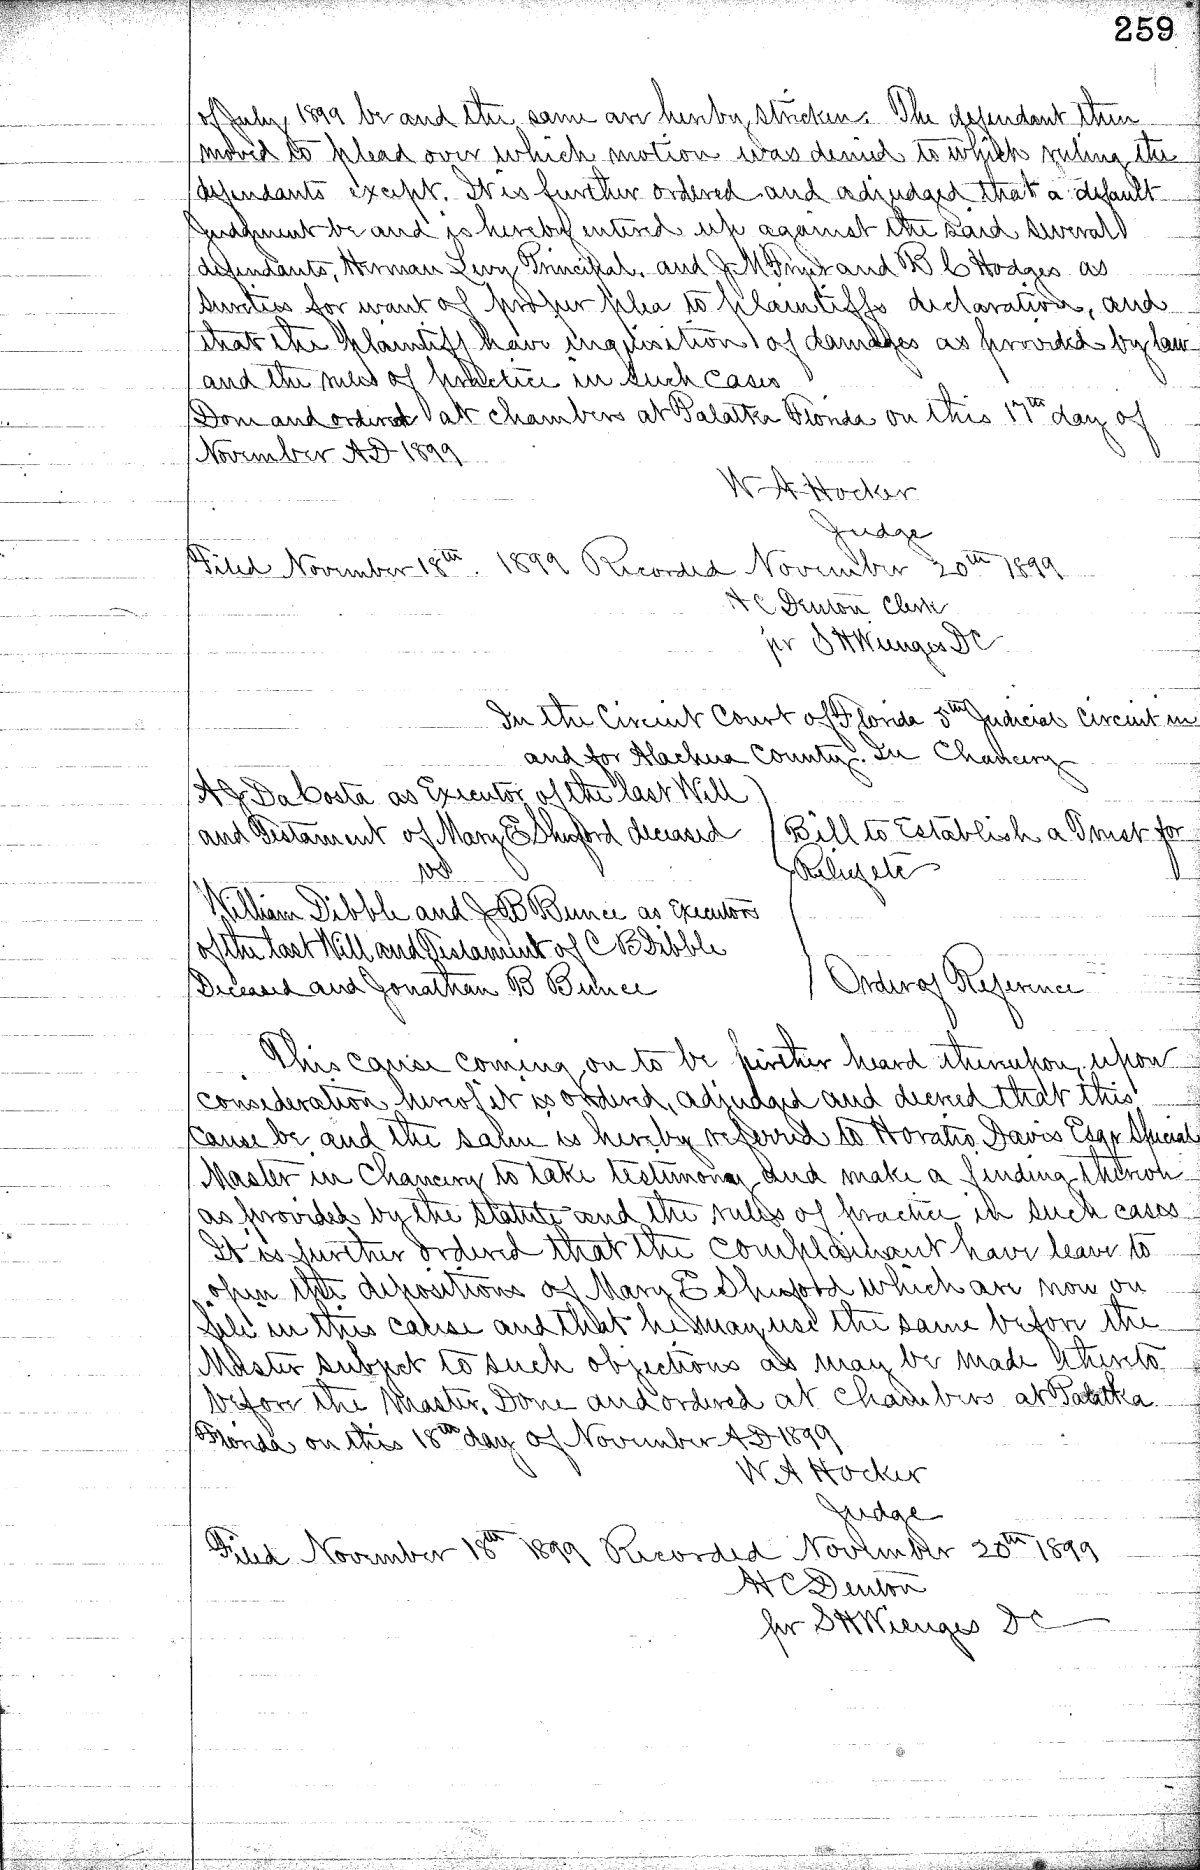 259
of July 1899 be and the same are hereby stricken. The defendant then
moved to plead over which motion was denied to which ruling the
defendants except. It is further ordered and adjudged that a default
Judgment be and is hereby entered up against the said several
defendants, Herman Levy Principal, and J M and B C Hodges as
sureties for want of proper plea to plaintiffs declaration, and
that the plaintiff have inquisition of damages as provided by law
and the rules of practice in such cases
Done and ordered at chambers at Palatka Florida on this 17th day of
November AD 1899
W A Hocker
Judge
Filed November 18th. 1899 Recorded November 20th 1899
H C Denton Clerk
per S H Wienges DC
In the Circuit Court of Florida 5th Judicial Circuit in
and for Alachua County. In Chancery
A J DaCosta as Executor of the last Will
and Testament of Mary E Shuford deceased
Bill to Establish a Trust for
vs
Relief etc
William Dibble and J B Bunce as Executors
of the last Will and Testament of C B Dibble
Deceased and Jonathan B Bunce
Order of Reference
This cause coming on to be further heard thereupon, upon
consideration hereof it is ordered, adjudged and decreed that this
cause be and the same is hereby referred to Horatio Davis Esqr Special
Master in Chancery to take testimony and make a finding thereon
as provided by the Statute and the rules of practice in such cases
It is further ordered that the complainant have leave to
open the depositions of Mary E Shuford which are now on
file in this cause and that he may use the same before the
Master subject to such objections as may be made thereto
before the Master. Done and ordered at Chambers at Palatka
Florida on this 18th day of November AD 1899
W A Hocker
Judge
Filed November 18th 1899 Recorded November 20th 1899
H C Denton
per S H Wienges DC